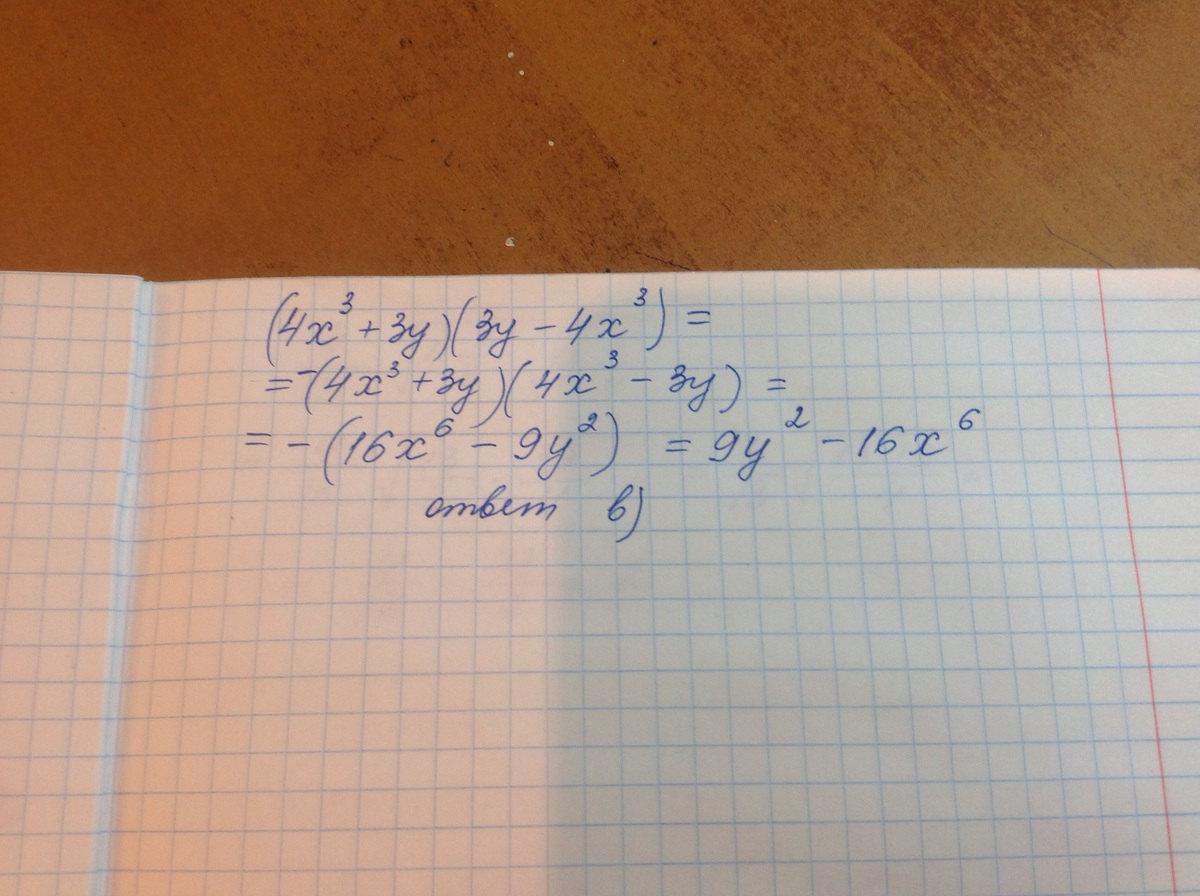 (4x³ + 3y)(3y − 4x³) =
= −(4x³ + 3y)(4x³ − 3y) =
= −(16x⁶ − 9y²) = 9y² − 16x⁶
ответ в)